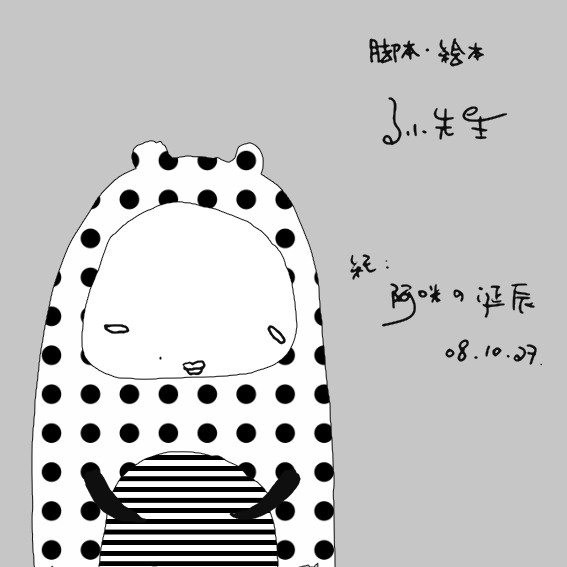 脚本·絵本
小先生
纪:
阿咪の诞辰
08.10.27.